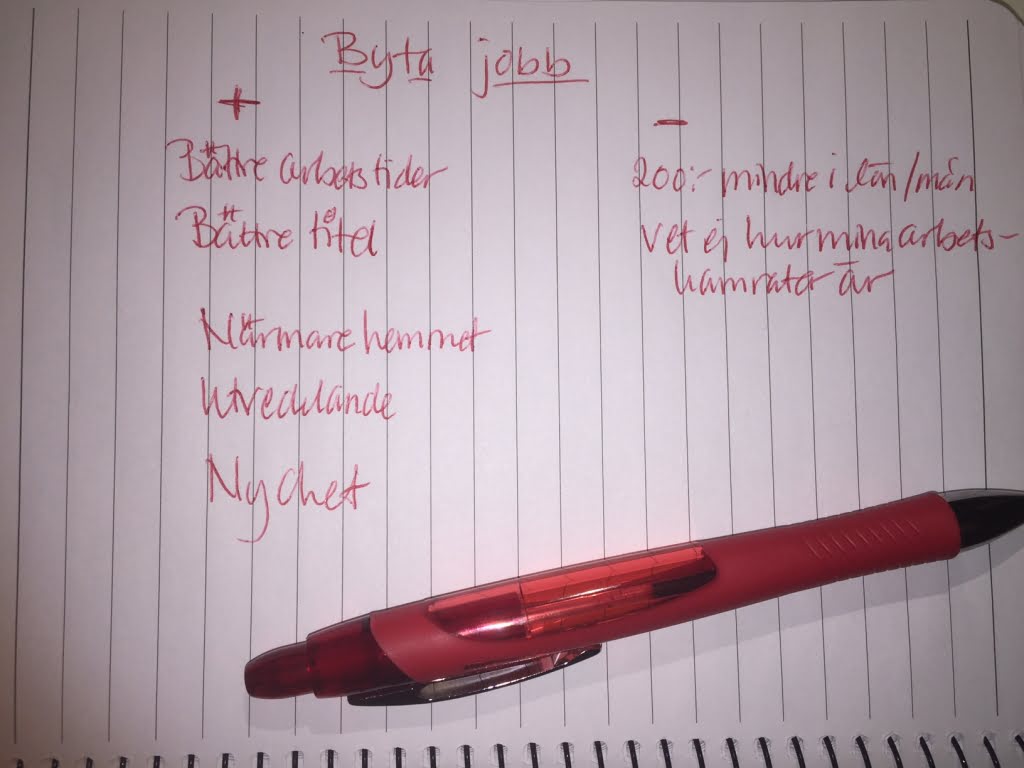 Byta jobb
+
Bättre arbetstider
Bättre titel
Närmare hemmet
Utvecklande
Nyhet
-
200:- mindre i lön/mån
Vet ej hur mina arbets-
kamrater är